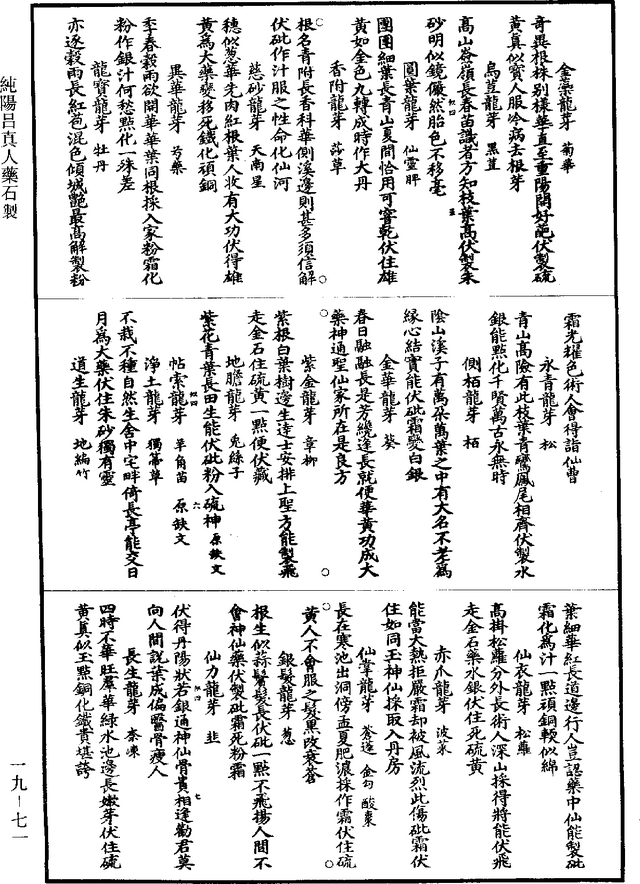 金蘂龍芽　菊華
奇異根株別樣華直至重陽開好葩伏製硫
黃真似寶人服冷病去根芽
烏荳龍芽　黑荳
高山峯嶺長春苗識者方知枝葉高伏製朱
砂明似鏡儼然胎色不移毫
圓葉龍芽　仙靈脾
團團細葉長青山夏間恰用可窨乾伏住雄
黃如金色九轉成時作大丹
香附龍芽　莎草
根名青附長香科華側溪邊則甚多須信解
伏砒作汁服之性命化仙河
慈砂龍芽　天南星
穗似蔥華先肉紅根葉人收有大功伏得雄
黃爲大藥變移死鐵化頑銅
異華龍芽　芍藥
季春穀雨欲開華華葉同根採入家粉霜化
粉作銀汁何愁點化一殊差
龍寶龍芽　牡丹
亦逐穀雨長紅苞混色傾城艷最高解製粉
霜光耀色術人會得詣仙曹
永青龍芽　松
青山高險有此枝葉青鸞鳳尾相齊伏製水
銀能點化千賢萬古永無時
側栢龍芽　栢
陰山溪子有萬朵萬葉之中有大名不老爲
緣心結實能伏砒霜變白銀
金華龍芽　葵
春日融融長是芳繞邊長就便華黃功成大
藥神通聖仙家所在是良方
紫金龍芽　章柳
紫根白葉樹邊生達士安排上聖方能製飛
走金石住硫黃一點便伏藏
地膽龍芽　兔絲子
紫花青葉長田生能伏砒粉入硫神原缺文
帖索龍芽　羊角苗　原缺文
淨土龍芽　獨箒草
不栽不種自然生舍中宅畔倚長亭能交日
月爲大藥伏住朱砂獨有靈
道生龍芽　地編竹
葉細華紅長道邊行人豈認藥中仙能製砒
霜化爲汁一點頑銅輭似綿
仙衣龍芽　松蘿
高掛松蘿分外長術人深山採得將能伏飛
走金石藥水銀伏住死硫黃
赤爪龍芽　波菜
能當大熱拒嚴霜却被風流烈此傷砒霜伏
住如同玉神仙採取入丹房
仙掌龍芽　蒼邊　金勾　酸棗
長在寒池出洞傍孟夏肥濃採作霜伏住硫
黃人不會服之髮黑改衰蒼
銀髮龍芽　蔥
根生似蒜鬢髮長伏砒一點不飛揚人間不
會神仙藥伏製砒霜死粉霜
仙力龍芽　韭
伏得丹陽狀若銀通神仙骨貴相逢勸君莫
向人間說葉成偏醫骨瘦人
長生龍芽　柰凍
四時不華旺羣華綠水池邊長嫩芽伏住硫
黃真似玉點銅化鐵貴堪誇
純陽呂真人藥石製
一九－七一